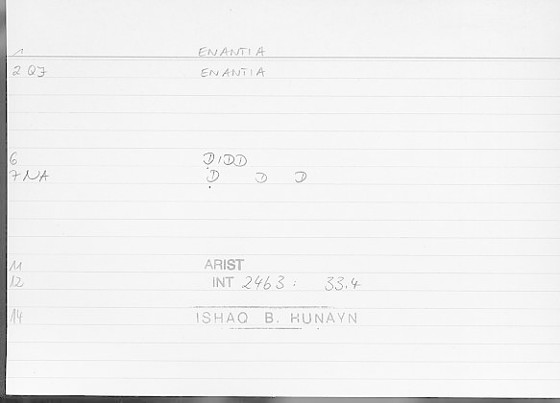 1 ENANTIA
2 QJ ENANTIA
6 DIDD
7 NA D D D
11 ARIST
12 INT 2463 : 33.4
14 ISHAQ B. HUNAYN